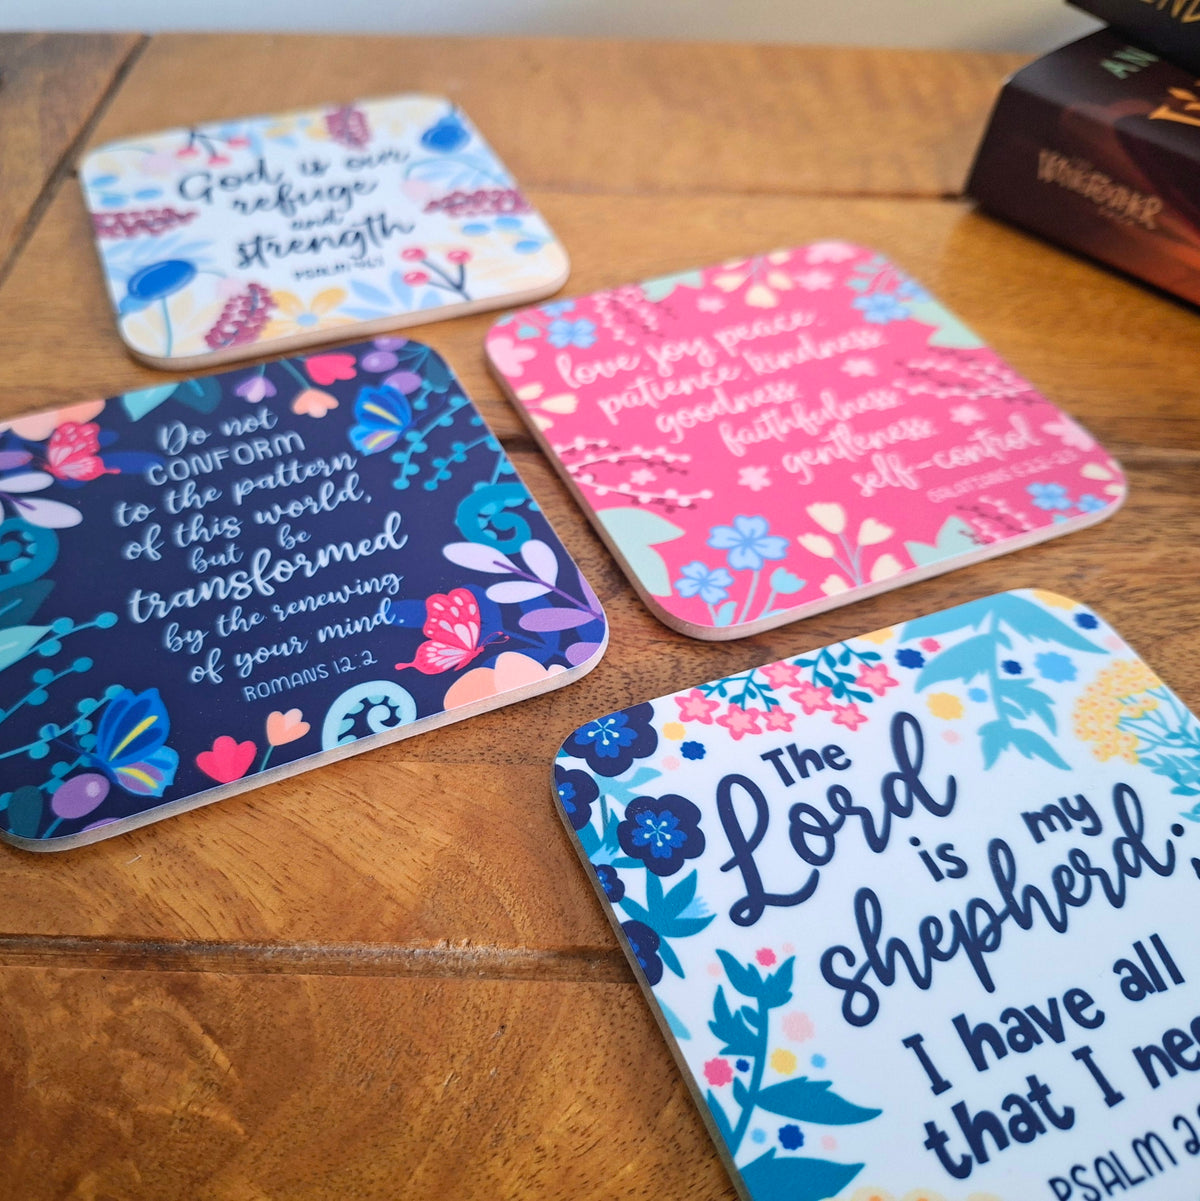 God is our
refuge
and
strength
PSALM 46:1
love joy peace
patience kindness
goodness
faithfulness
gentleness
self-control
GALATIANS 5:22-23
Do not
CONFORM
to the pattern
of this world,
but be
transformed
by the renewing
of your mind.
ROMANS 12:2
The
Lord
is my
shepherd.
I have all
that I
PSALM
AN
WINGFEATHER